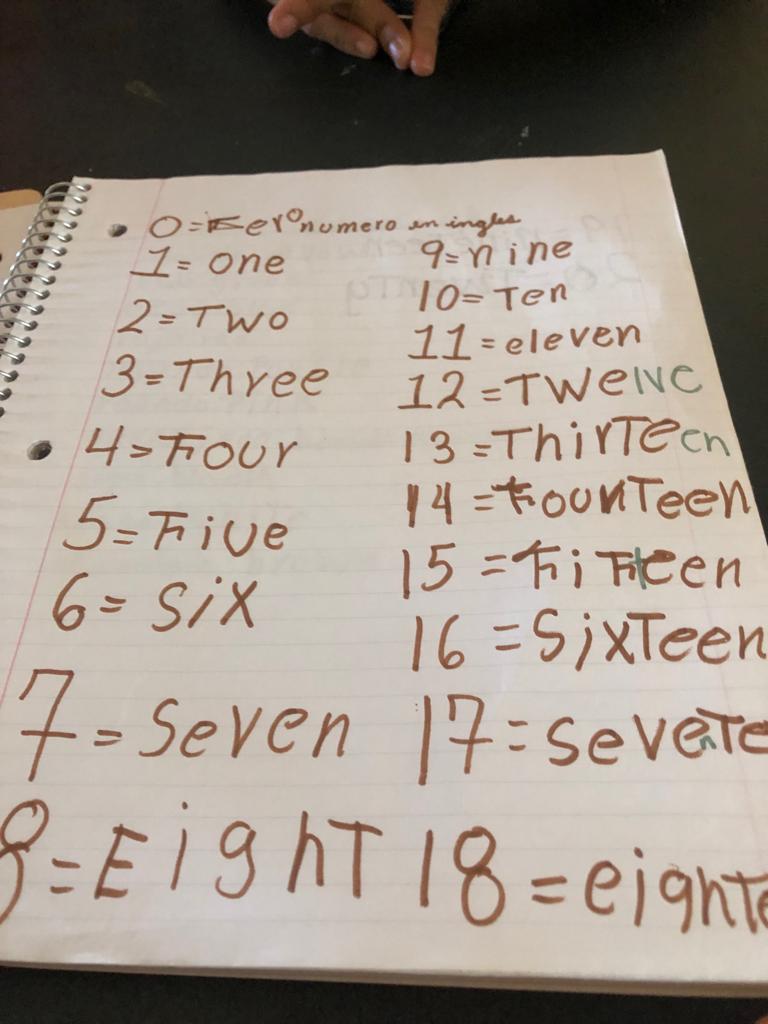 0=Zero numero en ingles
1= one
2=Two
3=Three
4=Four
5=Five
6= Six
7= Seven
8=EighT
9=nine
10=Ten
11=eleven
12=TWelve
13=ThirTeen
14=FourTeen
15=FiFteen
16=SixTeen
17=SevenTe
18=eighTe